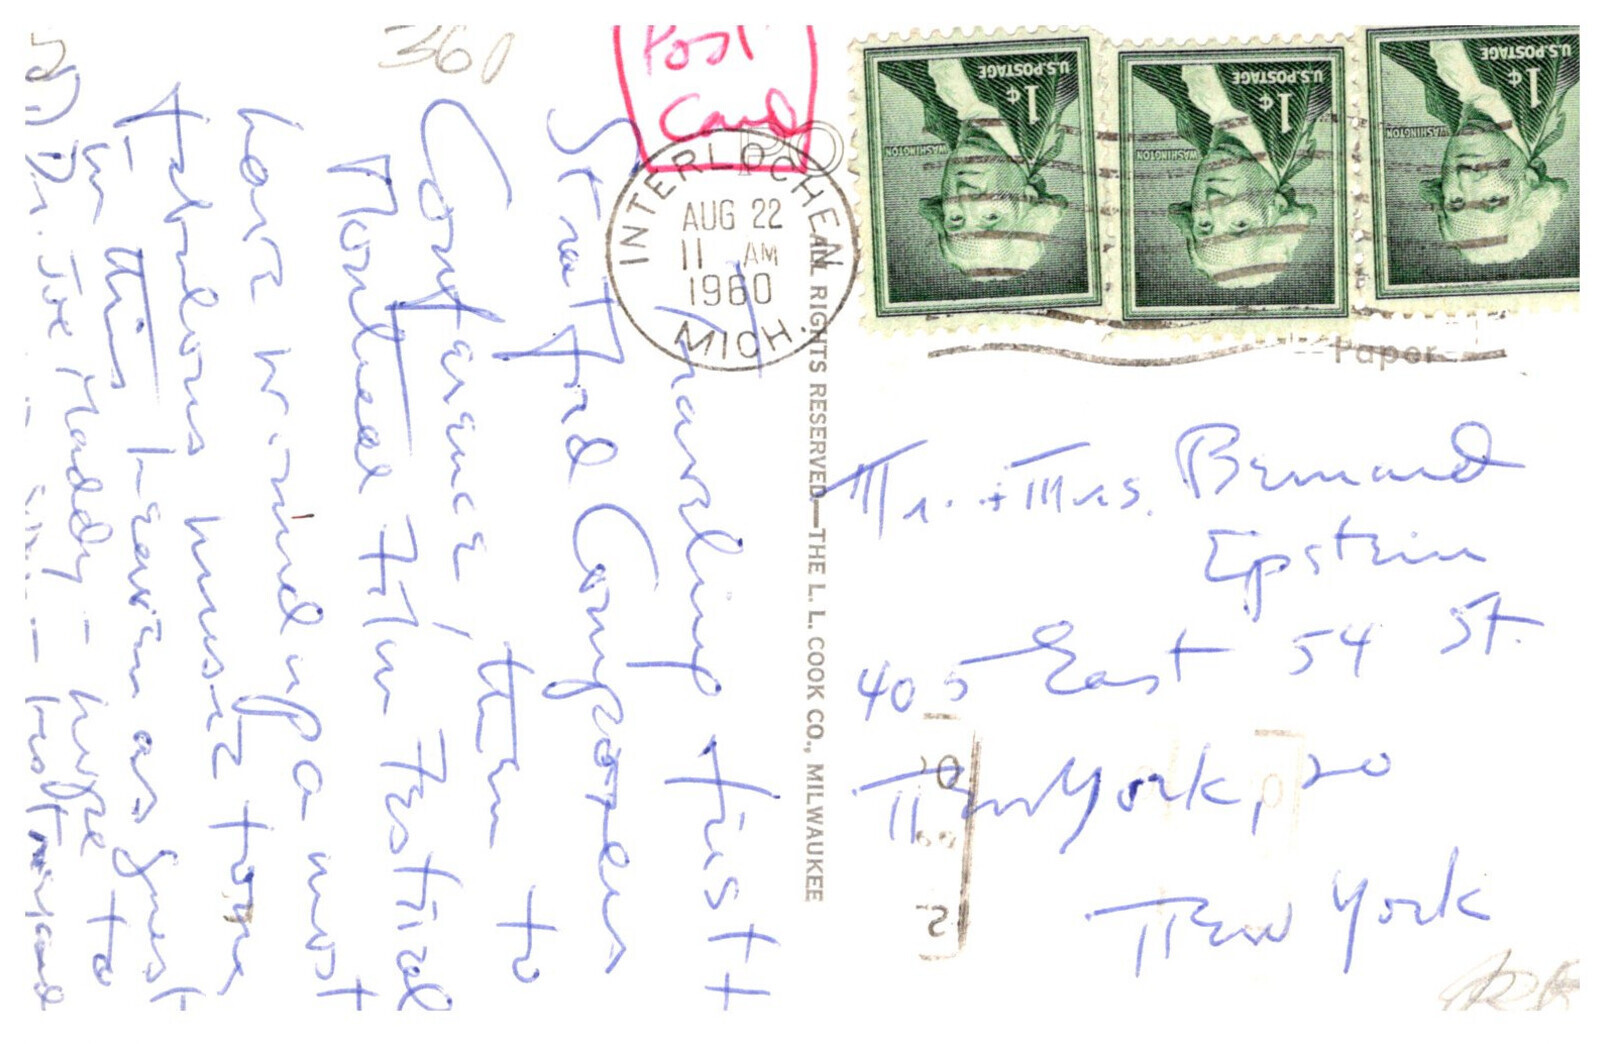 360
Post
Card
INTERLOCHEN
AUG 22
11 AM
1960
MICH.
U.S. POSTAGE
1¢
WASHINGTON
U.S. POSTAGE
1¢
WASHINGTON
U.S. POSTAGE
1¢
WASHINGTON
Traveling first
Stratford Composers
Conference, then to
Montreal Film Festival
have wound up a most
fabulous music tour
in this heaven as guest
Dr. Joe Maddy - hope to
ALL RIGHTS RESERVED.—THE L. L. COOK CO., MILWAUKEE
Paper
Mr. + Mrs. Bernard
Epstein
405 East 54 St.
New York, 20
New York